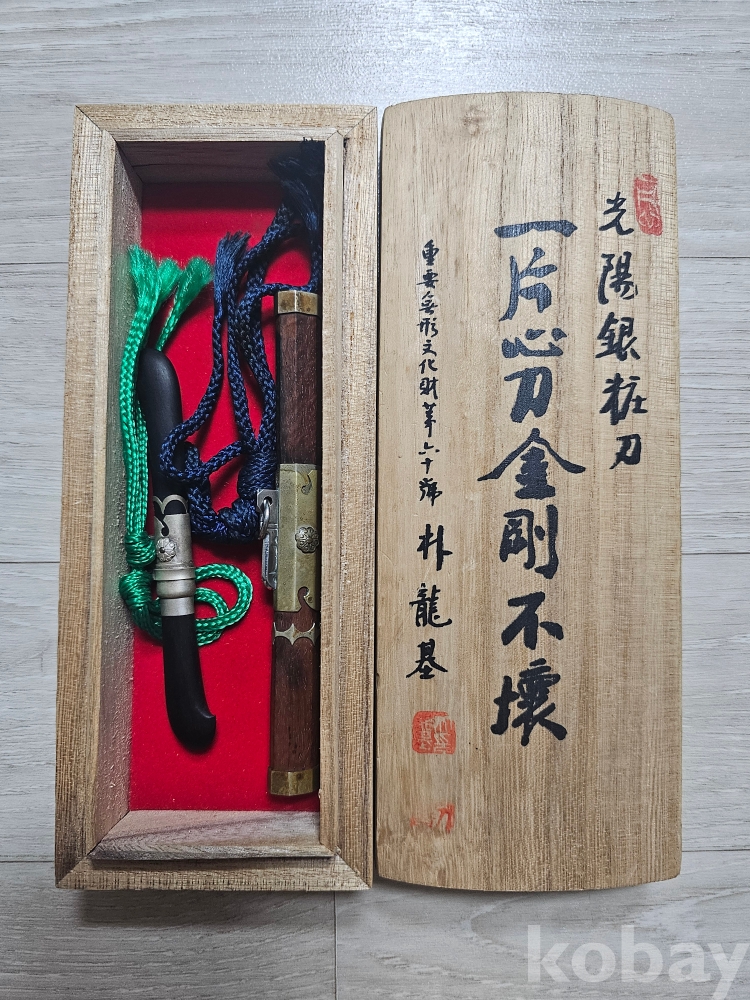 光陽銀粧刀
一片心刀金剛不壞
重要無形文化財第六十號 朴龍基
kobay